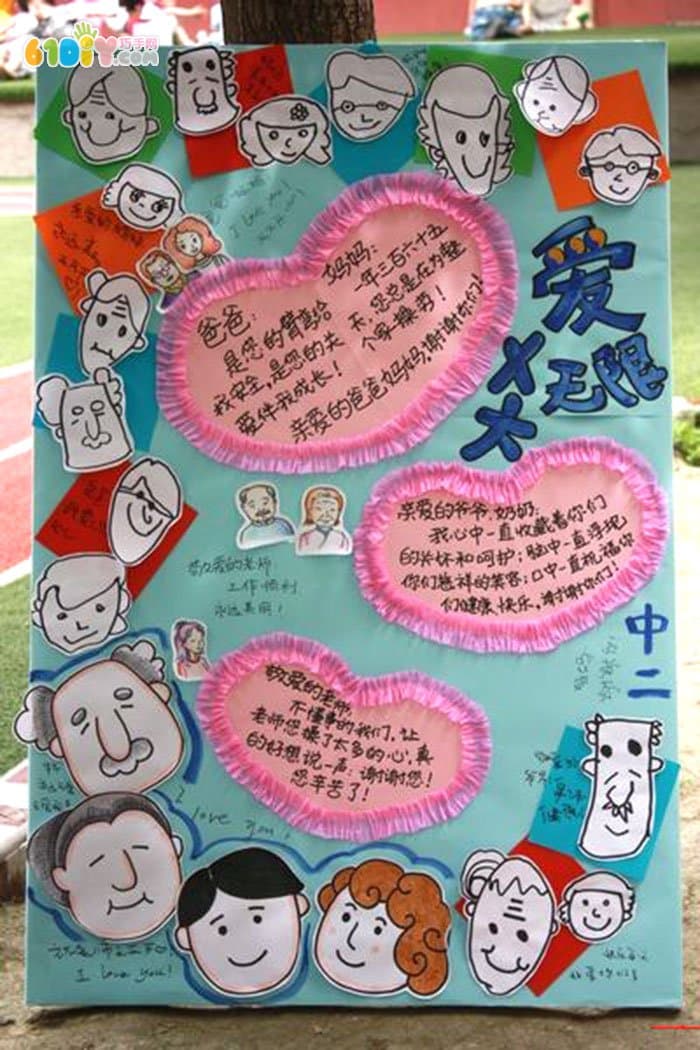 61DIY巧手网
I love you!
爱
无限
爸爸：
是您的臂弯给
我安全，是您的关
爱伴我成长！
妈妈：
一年三百六十五
天，您总是在为整
个家操劳！
亲爱的爸爸妈妈，谢谢你们！
亲爱的爷爷、奶奶：
我心中一直收藏着你们
的关怀和呵护；脑中一直浮现
你们慈祥的笑容；口中一直祝福你
们健康、快乐，谢谢你们！
敬爱的老师
工作顺利
永远美丽！
中二
敬爱的老师
不懂事的我们，让
老师您操了太多的心，真
的好想说一声：谢谢您！
您辛苦了！
I love you!
I love you!